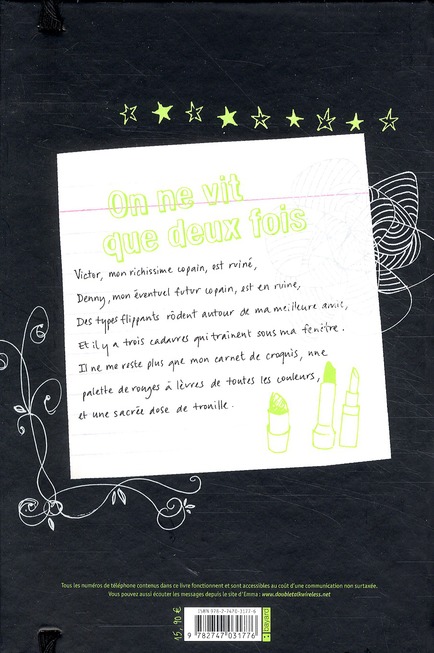 On ne vit
que deux fois
Victor, mon richissime copain, est ruiné,
Denny, mon éventuel futur copain, est en ruine,
Des types flippants rôdent autour de ma meilleure amie,
Et il y a trois cadavres qui traînent sous ma fenêtre.
Il ne me reste plus que mon carnet de croquis, une
palette de rouges à lèvres de toutes les couleurs,
et une sacrée dose de trouille.
Tous les numéros de téléphone contenus dans ce livre fonctionnent et sont accessibles au coût d'une communication non surtaxée.
Vous pouvez aussi écouter les messages depuis le site d'Emma : www.doubletalkwireless.net
15,90 €
ISBN 978-2-7470-3177-6
9 782747 031776
bayard